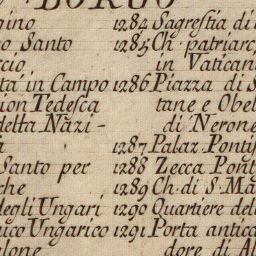 BORGO
gino 1284 Sagrestia di
o Santo 1285 Ch. patriarc
ccio in Vatican
ta in Campo 1286 Piazza di S
ion Tedesca tane e Obel
detta Nazi- di Nerone
a 1287 Palaz. Pontif
Santo per 1288 Zecca Pont
che 1289 Ch. di S. Ma
degli Ungari 1290 Quartiere del
uico Ungarico 1291 Porta antica
alone dore di Al